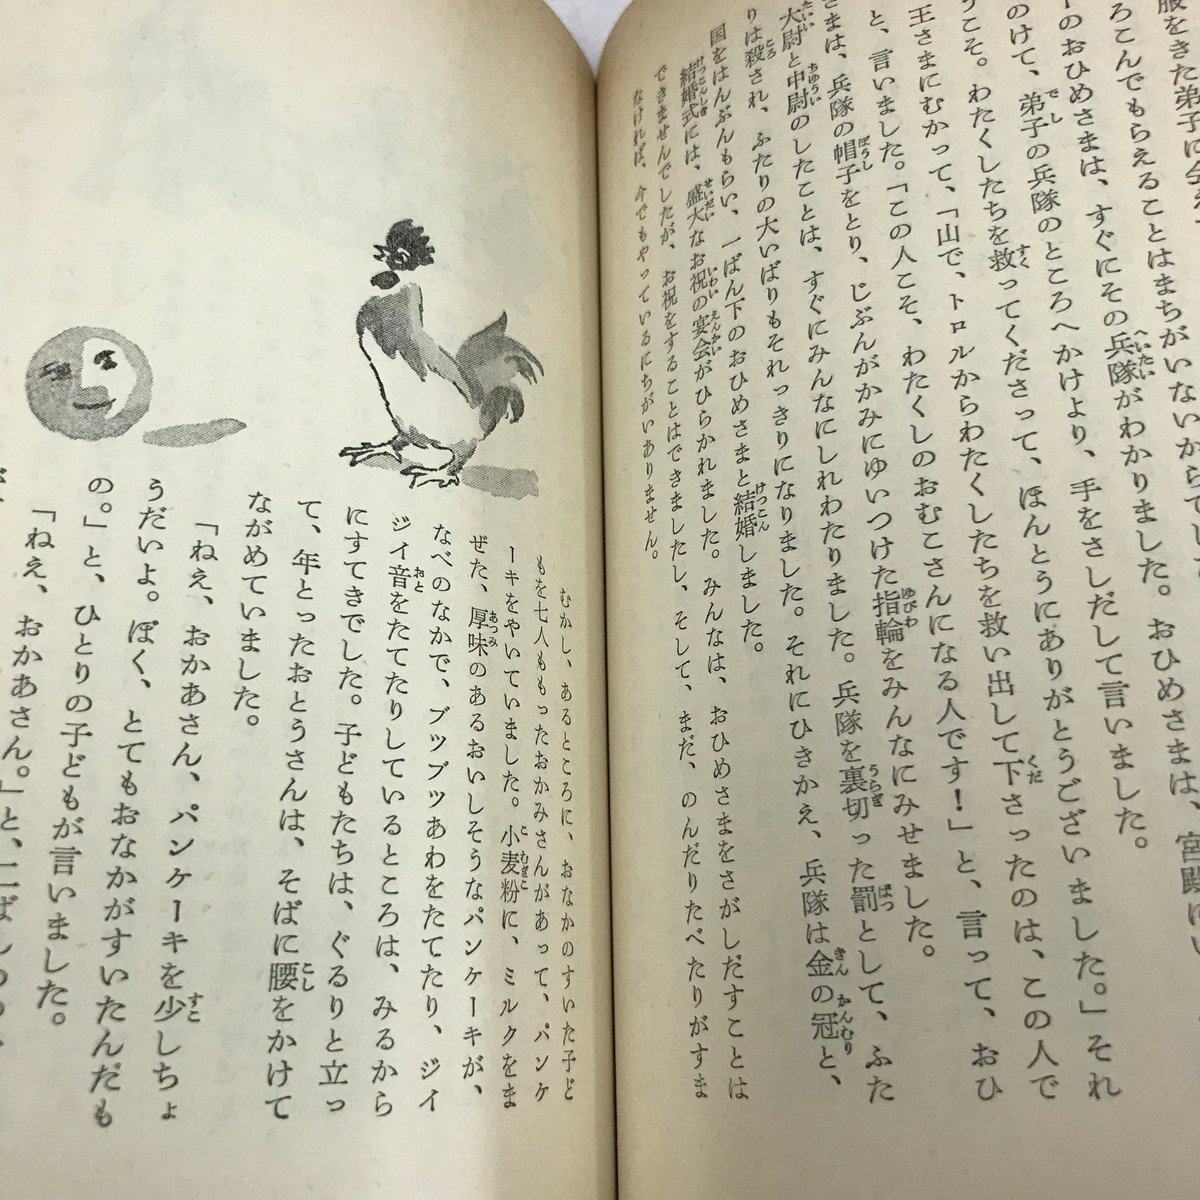 服をきた弟子に会え
ろこんでもらえることはまちがいないからでし
のおひめさまは、すぐにその兵隊がわかりました。おひめさまは、宮殿にい
のけて、弟子の兵隊のところへかけより、手をさしだして言いました。
うこそ。わたくしたちを救ってくださって、ほんとうにありがとうございました。」それ
王さまにむかって、「山で、トロルからわたくしたちを救い出して下さったのは、この人で
と、言いました。「この人こそ、わたくしのおむこさんになる人です！」と、言って、おひ
さまは、兵隊の帽子をとり、じぶんがかみにゆいつけた指輪をみんなにみせました。
大尉と中尉のしたことは、すぐにみんなにしれわたりました。兵隊を裏切った罰として、ふた
りは殺され、ふたりの大いばりもそれっきりになりました。それにひきかえ、兵隊は金の冠と、
国をはんぶんもらい、一ばん下のおひめさまと結婚しました。
結婚式には、盛大なお祝の宴会がひらかれました。みんなは、おひめさまをさがしだすことは
できませんでしたが、お祝をすることはできましたし、そして、まだ、のんだりたべたりがすま
なければ、今でもやっているにちがいありません。
むかし、あるところに、おなかのすいた子ど
もを七人ももったおかみさんがあって、パンケ
ーキをやいていました。小麦粉に、ミルクをま
ぜた、厚味のあるおいしそうなパンケーキが、
なべのなかで、ブツブツあわをたてたり、ジイ
ジイ音をたてたりしているところは、みるから
にすてきでした。子どもたちは、ぐるりと立っ
て、年とったおとうさんは、そばに腰をかけて
ながめていました。
「ねえ、おかあさん、パンケーキを少しちょ
うだいよ。ぼく、とてもおなかがすいたんだも
の。」と、ひとりの子どもが言いました。
「ねえ、おかあさん。」と、二ばんめの